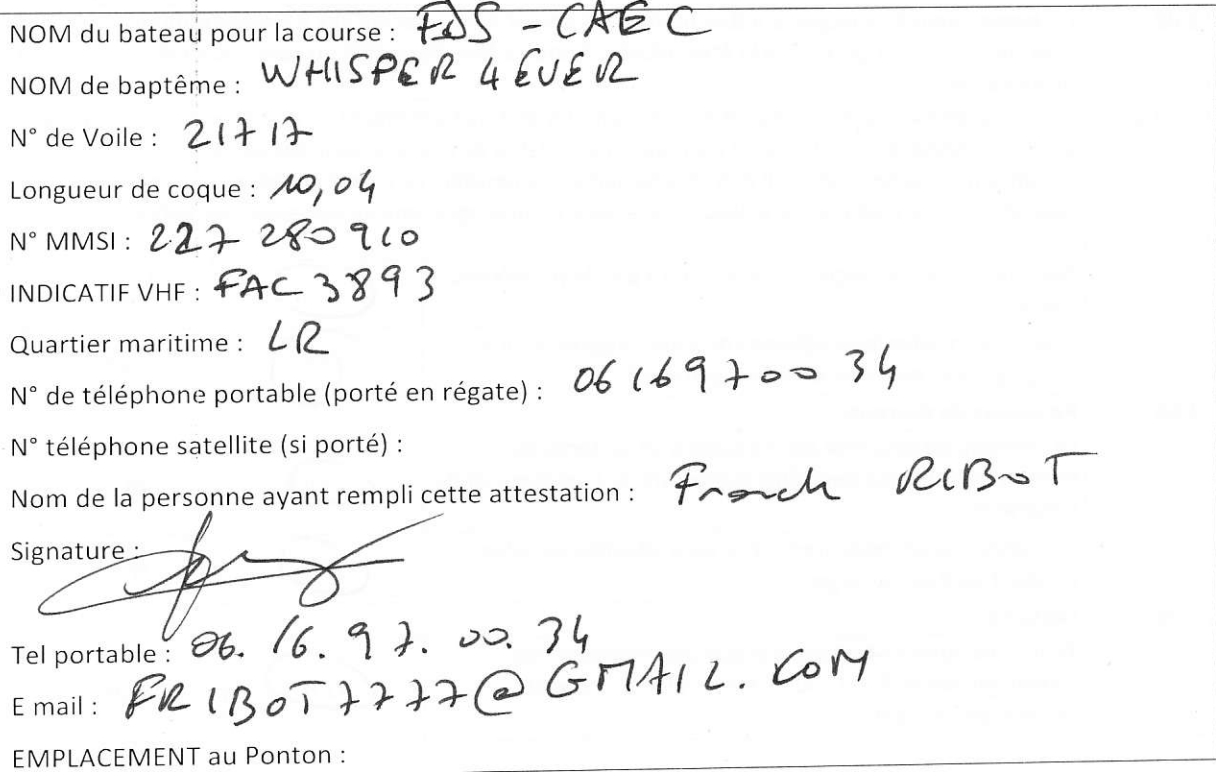 NOM du bateau pour la course : FDS - CAEC
NOM de baptême : WHISPER 4 EVER
N° de Voile : 21717
Longueur de coque : 10,04
N° MMSI : 227 280 910
INDICATIF VHF : FAC 3893
Quartier maritime : LR
N° de téléphone portable (porté en régate) : 06 16 97 00 34
N° téléphone satellite (si porté) :
Nom de la personne ayant rempli cette attestation : Franck RIBOT
Signature :
Tel portable : 06. 16. 97. 00. 34
E mail : FRIBOT7777@GMAIL.COM
EMPLACEMENT au Ponton :